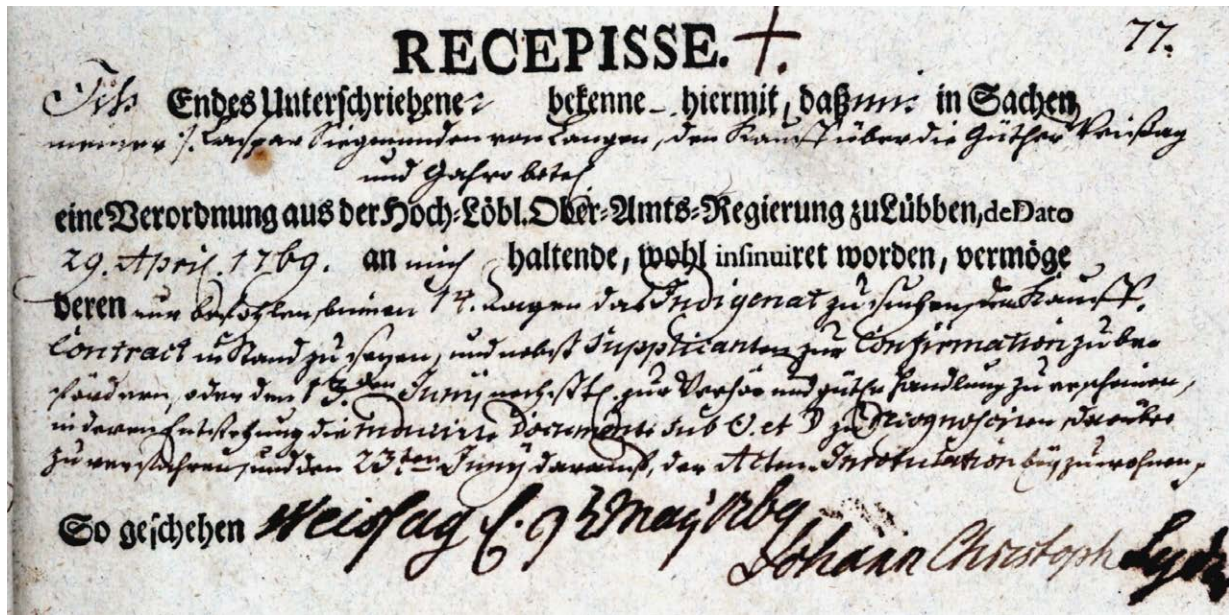 RECEPISSE. 77.
Ich Endes Unterschriebener bekenne hiermit, daß mir in Sachen
meiner /. Caspar Siegmunden von Langen, den Kauff über die Güther Weißag
und Gahro betr.
eine Verordnung aus der Hoch-Löbl. Ober-Amts-Regierung zu Lübben, de Dato
29. April. 1769. an mich haltende, wohl insinuiret worden, vermöge
deren nur befohlen, binnen 14. Tagen das Indigenat zu suchen, den Kauff-
Contract in Stand zu sezen, und nebst Supplicanten zur Confirmation zu be
fördern, oder den 13.den Junij nechstk. zur Verhör und güthe handlung zu erscheinen,
in deren Entstehung die Documenta sub C. et D zu Recognosciren, darüber
zu verfahren, und den 23ten Junij darauf, der Acten-Inrotulation beyzuwohnen,
So geschehen Weissag d. 9t May 1769
Johann Christoph